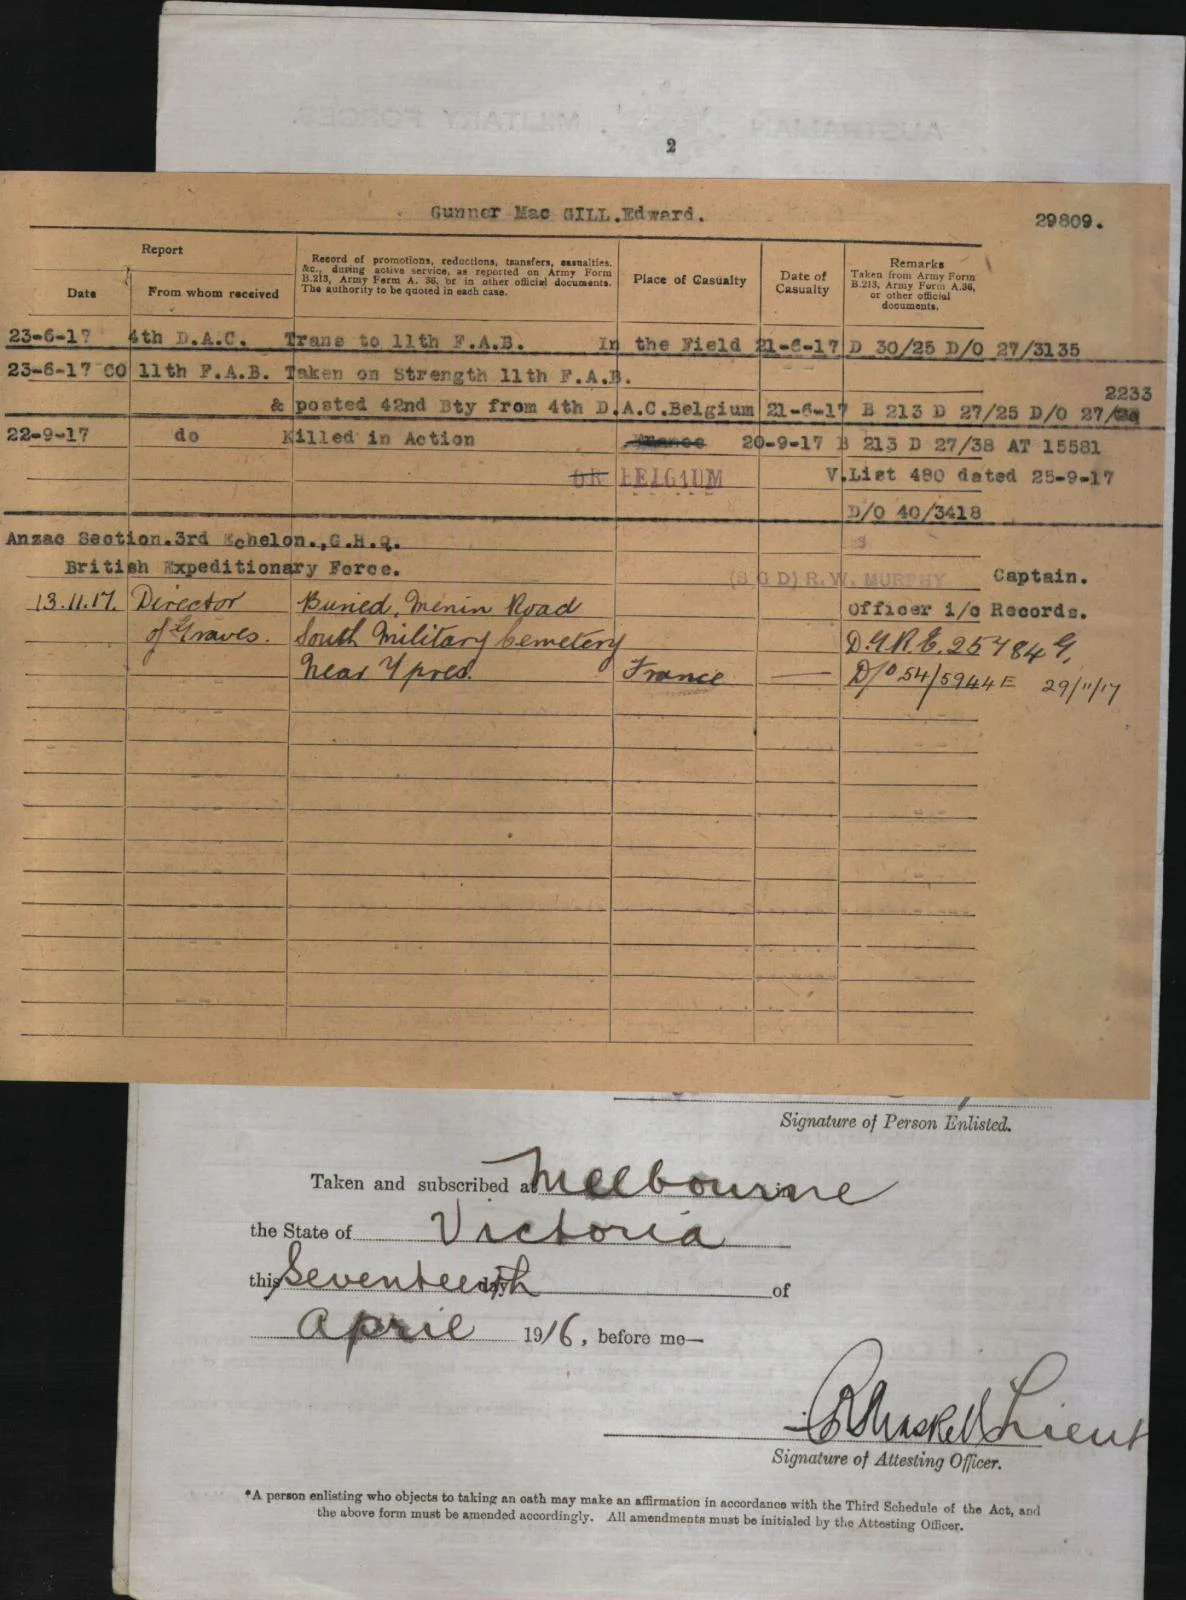 2
Gunner Mac GILL.Edward.
29809.
Report
Date
From whom received
Record of promotions, reductions, transfers, casualties,
&c., during active service, as reported on Army Form
B.213, Army Form A. 36, or in other official documents.
The authority to be quoted in each case.
Place of Casualty
Date of
Casualty
Remarks
Taken from Army Form
B.213, Army Form A.36,
or other official
documents.
23-6-17 4th D.A.C. Trans to 11th F.A.B. In the Field 21-6-17 D 30/25 D/O 27/3135
23-6-17 CO 11th F.A.B. Taken on Strength 11th F.A.B.
2233
& posted 42nd Bty from 4th D.A.C.Belgium 21-6-17 B 213 D 27/25 D/O 27/
22-9-17 do Killed in Action France 20-9-17 B 213 D 27/38 AT 15581
OR BELGIUM V.List 480 dated 25-9-17
D/O 40/3418
Anzac Section.3rd Echelon.,G.H.Q.
British Expeditionary Force.
(SGD) R.W. MURPHY Captain.
Officer i/c Records.
13.11.17. Director Buried, Menin Road
of Graves. South Military Cemetery D.G.R.E. 25484 G.
Near Ypres. France — D/O 54/5944E 29/11/17
Signature of Person Enlisted.
Taken and subscribed at Melbourne in
the State of Victoria
this Seventeenth day of
April 1916, before me—
Lieut
Signature of Attesting Officer.
*A person enlisting who objects to taking an oath may make an affirmation in accordance with the Third Schedule of the Act, and
the above form must be amended accordingly. All amendments must be initialed by the Attesting Officer.